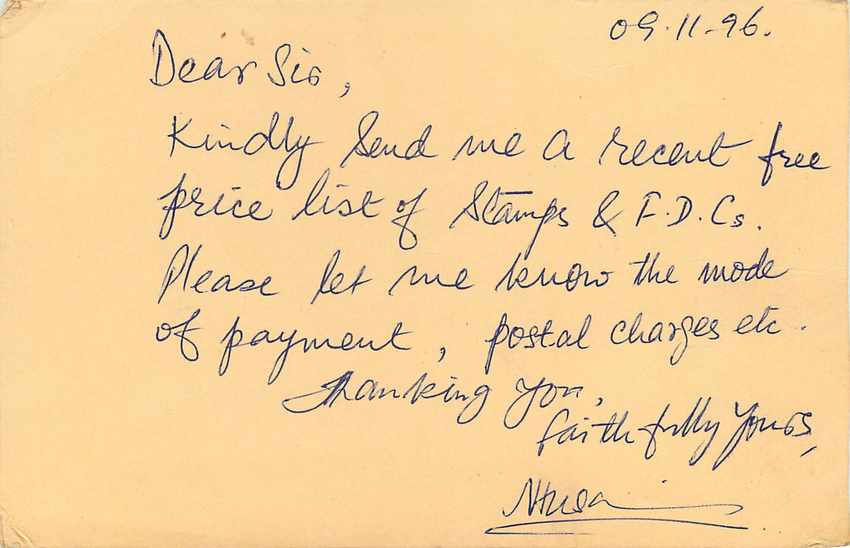 09.11-96.
Dear Sir,
Kindly Send me a recent free
price list of Stamps & F.D.Cs.
Please let me know the mode
of payment, postal charges etc.
Thanking you,
faithfully yours,